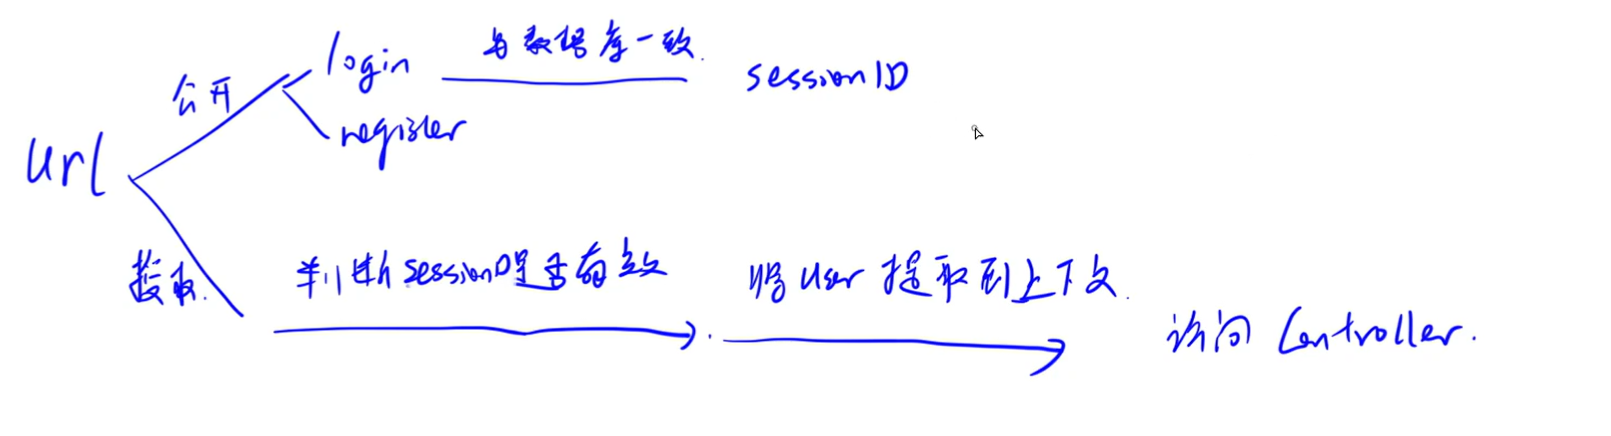 url
公开
login
register
与数据库一致.
sessionID
授权.
判断sessionID是否有效
将user 提取到上下文.
访问 Controller.